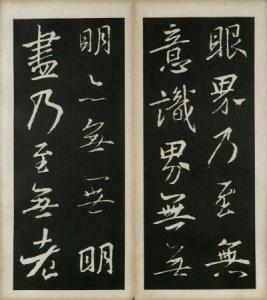 眼界乃至無
意識界無無
明亦無無明
盡乃至無老